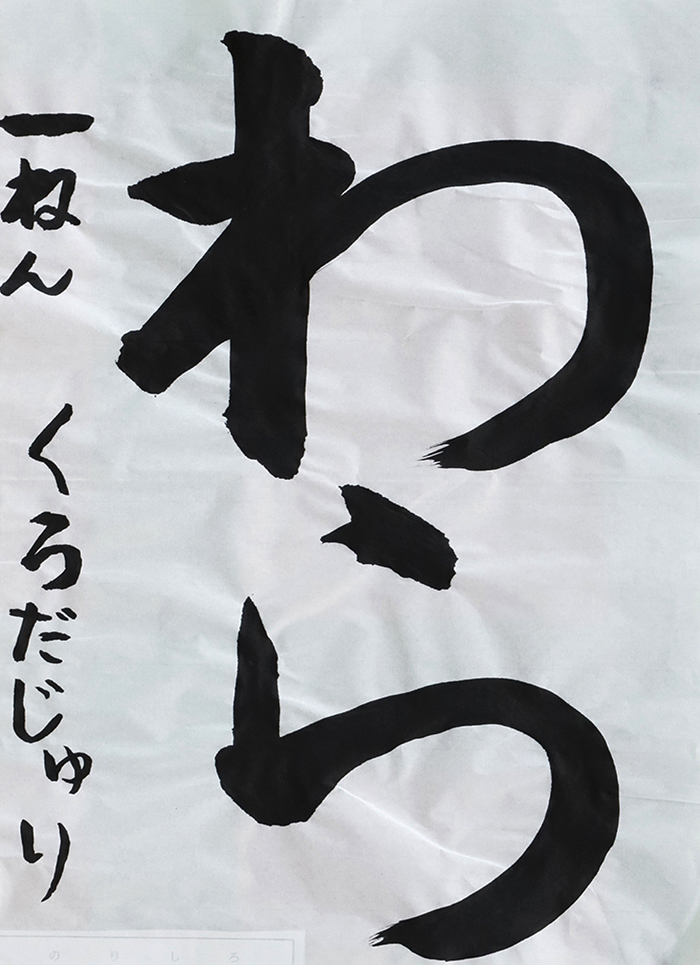 わら
一ねん くろだじゅり
のりしろ